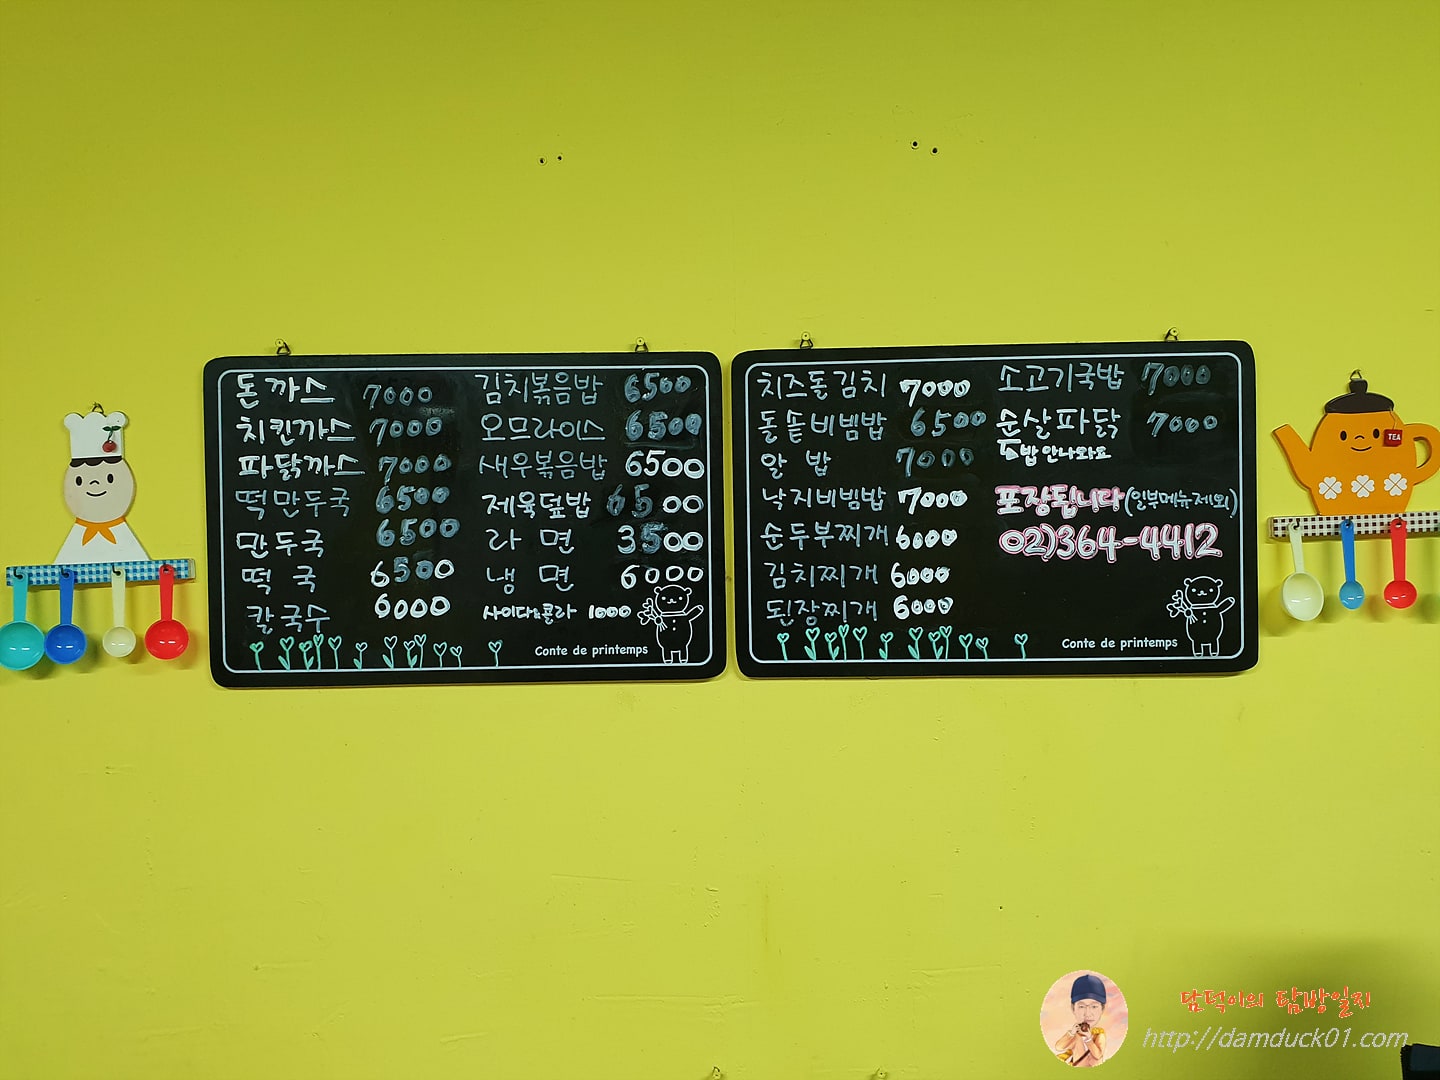 돈까스 7000
치킨까스 7000
파닭까스 7000
떡만두국 6500
만두국 6500
떡국 6500
칼국수 6000
김치볶음밥 6500
오므라이스 6500
새우볶음밥 6500
제육덮밥 6500
라면 3500
냉면 6000
사이다&콜라 1000
Conte de printemps
치즈돌김치 7000
돌솥비빔밥 6500
알밥 7000
낙지비빔밥 7000
순두부찌개 6000
김치찌개 6000
된장찌개 6000
소고기국밥 7000
순살파닭 7000
밥안나와요
포장됩니다(일부메뉴제외)
02)364-4412
Conte de printemps
TEA
담덕이의 탐방일지
http://damduck01.com